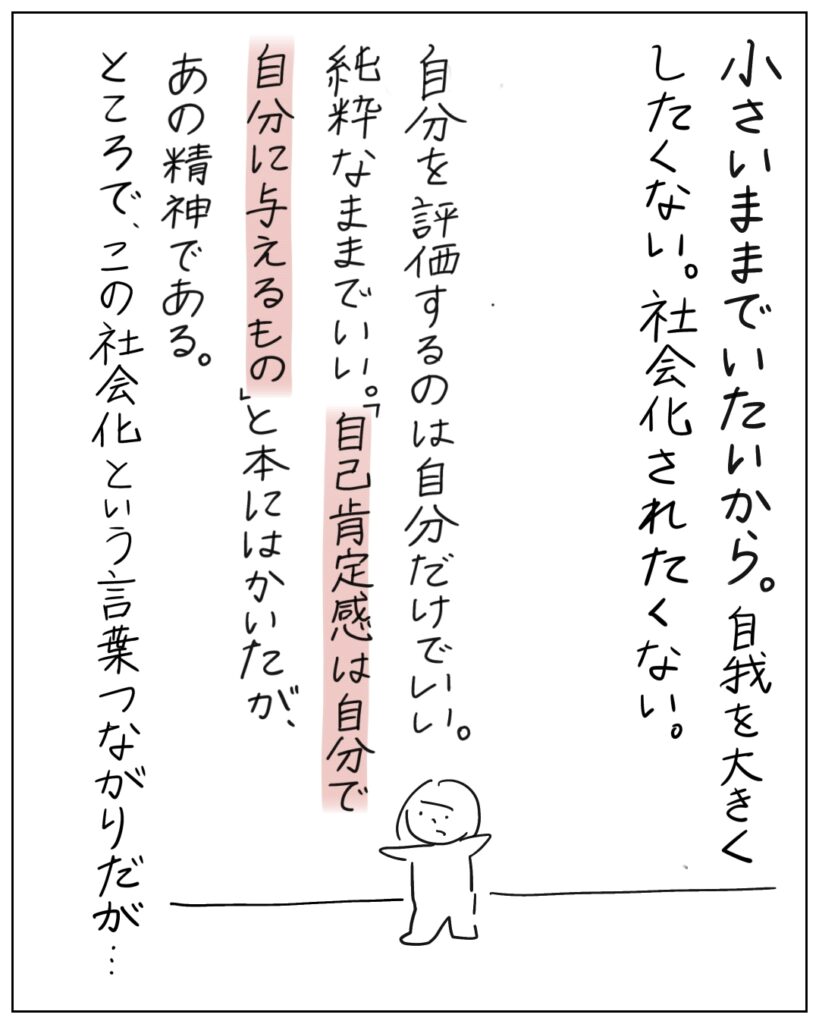 小さいままでいたいから。自我を大きく
したくない。社会化されたくない。
自分を評価するのは自分だけでいい。
純粋なままでいい。「自己肯定感は自分で
自分に与えるもの」と本にはかいたが、
あの精神である。
ところで、この社会化という言葉つながりだが…